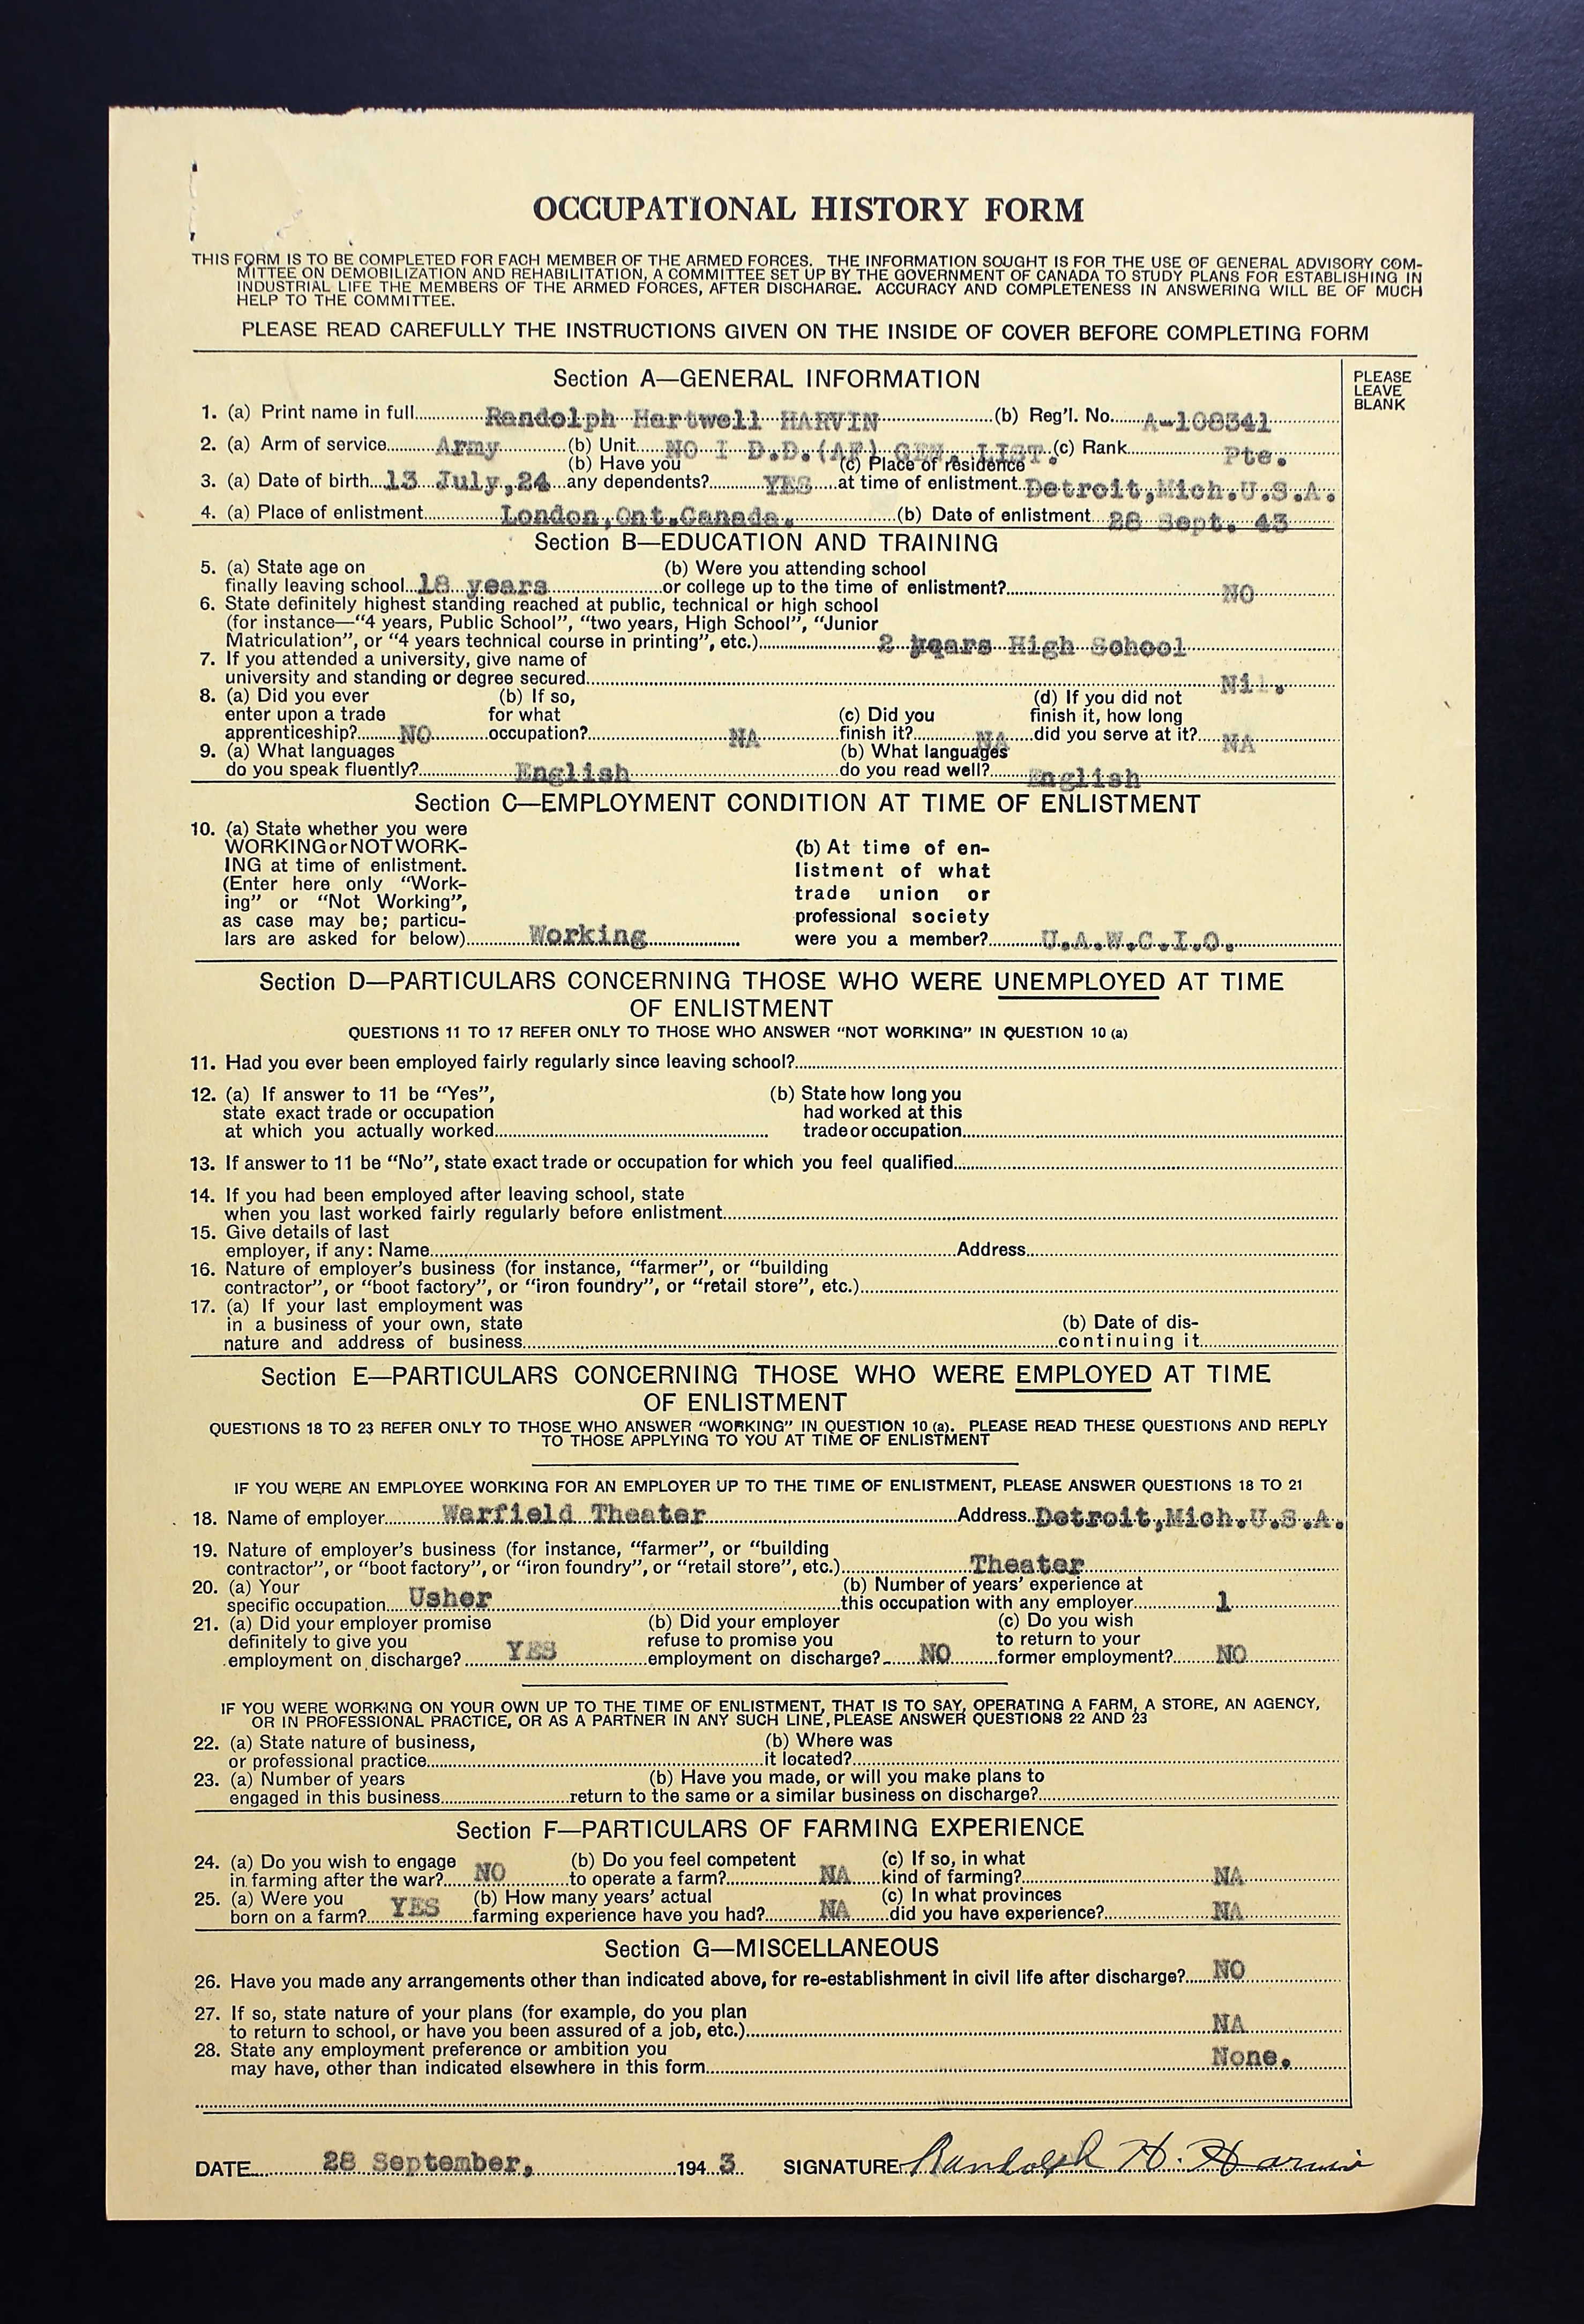 OCCUPATIONAL HISTORY FORM
THIS FORM IS TO BE COMPLETED FOR EACH MEMBER OF THE ARMED FORCES. THE INFORMATION SOUGHT IS FOR THE USE OF GENERAL ADVISORY COM-
MITTEE ON DEMOBILIZATION AND REHABILITATION, A COMMITTEE SET UP BY THE GOVERNMENT OF CANADA TO STUDY PLANS FOR ESTABLISHING IN
INDUSTRIAL LIFE THE MEMBERS OF THE ARMED FORCES, AFTER DISCHARGE. ACCURACY AND COMPLETENESS IN ANSWERING WILL BE OF MUCH
HELP TO THE COMMITTEE.
PLEASE READ CAREFULLY THE INSTRUCTIONS GIVEN ON THE INSIDE OF COVER BEFORE COMPLETING FORM
Section A—GENERAL INFORMATION
PLEASE
LEAVE
BLANK
1. (a) Print name in full Randolph Hartwell HARVIN (b) Reg'l. No. A-108341
2. (a) Arm of service Army (b) Unit NO I D.D.(AF) GEN. LIST. (c) Rank Pte.
(b) Have you (c) Place of residence
3. (a) Date of birth 13 July,24 any dependents? YES at time of enlistment Detroit,Mich.U.S.A.
4. (a) Place of enlistment London,Ont.Canada. (b) Date of enlistment 28 Sept. 43
Section B—EDUCATION AND TRAINING
5. (a) State age on (b) Were you attending school
finally leaving school 18 years or college up to the time of enlistment? NO
6. State definitely highest standing reached at public, technical or high school
(for instance—"4 years, Public School", "two years, High School", "Junior
Matriculation", or "4 years technical course in printing", etc.) 2 years High School
7. If you attended a university, give name of
university and standing or degree secured Nil.
8. (a) Did you ever (b) If so, (d) If you did not
enter upon a trade for what (c) Did you finish it, how long
apprenticeship? NO occupation? NA finish it? NA did you serve at it? NA
9. (a) What languages (b) What languages
do you speak fluently? English do you read well? English
Section C—EMPLOYMENT CONDITION AT TIME OF ENLISTMENT
10. (a) State whether you were
WORKING or NOT WORK- (b) At time of en-
ING at time of enlistment. listment of what
(Enter here only "Work- trade union or
ing" or "Not Working", professional society
as case may be; particu-
lars are asked for below) Working were you a member? U.A.W.C.I.O.
Section D—PARTICULARS CONCERNING THOSE WHO WERE UNEMPLOYED AT TIME
OF ENLISTMENT
QUESTIONS 11 TO 17 REFER ONLY TO THOSE WHO ANSWER "NOT WORKING" IN QUESTION 10 (a)
11. Had you ever been employed fairly regularly since leaving school?
12. (a) If answer to 11 be "Yes", (b) State how long you
state exact trade or occupation had worked at this
at which you actually worked trade or occupation
13. If answer to 11 be "No", state exact trade or occupation for which you feel qualified
14. If you had been employed after leaving school, state
when you last worked fairly regularly before enlistment
15. Give details of last
employer, if any: Name Address
16. Nature of employer's business (for instance, "farmer", or "building
contractor", or "boot factory", or "iron foundry", or "retail store", etc.)
17. (a) If your last employment was
in a business of your own, state (b) Date of dis-
nature and address of business continuing it
Section E—PARTICULARS CONCERNING THOSE WHO WERE EMPLOYED AT TIME
OF ENLISTMENT
QUESTIONS 18 TO 23 REFER ONLY TO THOSE WHO ANSWER "WORKING" IN QUESTION 10 (a). PLEASE READ THESE QUESTIONS AND REPLY
TO THOSE APPLYING TO YOU AT TIME OF ENLISTMENT
IF YOU WERE AN EMPLOYEE WORKING FOR AN EMPLOYER UP TO THE TIME OF ENLISTMENT, PLEASE ANSWER QUESTIONS 18 TO 21
18. Name of employer Warfield Theater Address Detroit,Mich.U.S.A.
19. Nature of employer's business (for instance, "farmer", or "building
contractor", or "boot factory", or "iron foundry", or "retail store", etc.) Theater
20. (a) Your (b) Number of years' experience at
specific occupation Usher this occupation with any employer 1
21. (a) Did your employer promise (b) Did your employer (c) Do you wish
definitely to give you refuse to promise you to return to your
employment on discharge? YES employment on discharge? NO former employment? NO
IF YOU WERE WORKING ON YOUR OWN UP TO THE TIME OF ENLISTMENT, THAT IS TO SAY, OPERATING A FARM, A STORE, AN AGENCY,
OR IN PROFESSIONAL PRACTICE, OR AS A PARTNER IN ANY SUCH LINE, PLEASE ANSWER QUESTIONS 22 AND 23
22. (a) State nature of business, (b) Where was
or professional practice it located?
23. (a) Number of years (b) Have you made, or will you make plans to
engaged in this business return to the same or a similar business on discharge?
Section F—PARTICULARS OF FARMING EXPERIENCE
24. (a) Do you wish to engage (b) Do you feel competent (c) If so, in what
in farming after the war? NO to operate a farm? NA kind of farming? NA
25. (a) Were you (b) How many years' actual (c) In what provinces
born on a farm? YES farming experience have you had? NA did you have experience? NA
Section G—MISCELLANEOUS
26. Have you made any arrangements other than indicated above, for re-establishment in civil life after discharge? NO
27. If so, state nature of your plans (for example, do you plan
to return to school, or have you been assured of a job, etc.) NA
28. State any employment preference or ambition you
may have, other than indicated elsewhere in this form None.
DATE 28 September, 194 3 SIGNATURE Randolph H. Harvin